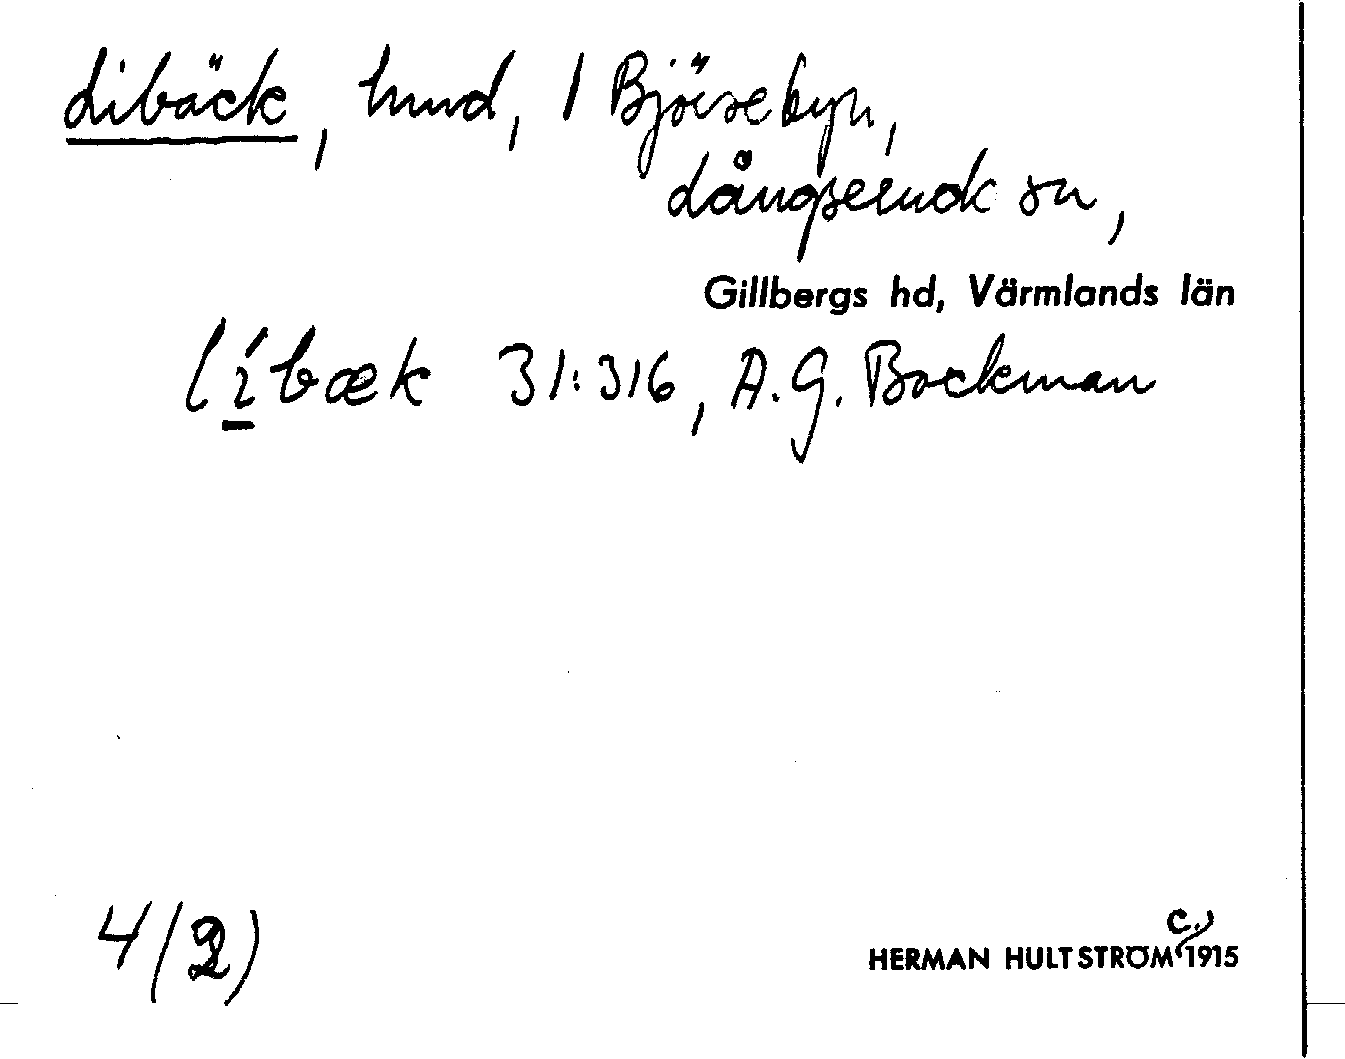 Libäck, hund, 1 Björsebyn,
Långseruds sn,
Gillbergs hd, Värmlands län
lí̱bæk 31:316, A.G. Bockman
4/(2)
c.
HERMAN HULTSTRÖM, 1915